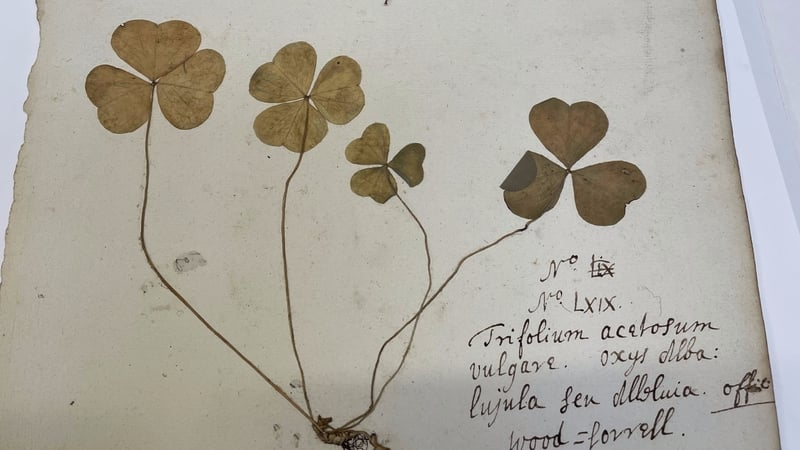 No LIX
No LXIX.
Trifolium acetosum
vulgare. oxys Alba:
lujula seu Alleluia. offic
wood=sorrell.